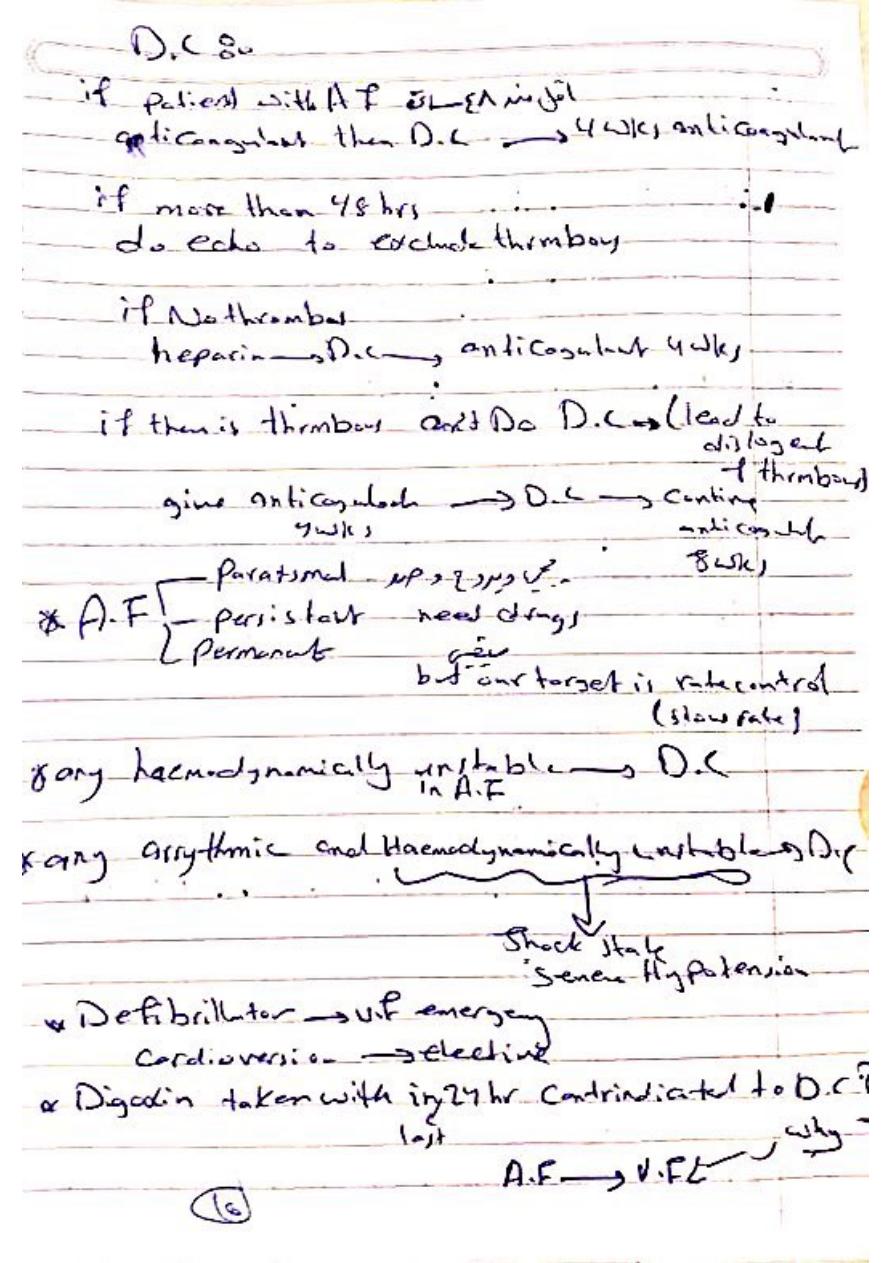 D.C
if patient with A F اقل من ٤٨ ساعة
anticoagulant then D.C → 4 wks anticoagulant
if more than 48 hrs
do echo to exclude thrmbous
if No thrombus
heparin → D.C → anticoagulant 4 wks
if then is thrmbous can't Do D.C → (lead to
dislogent
of thrmbous)
give anticoagulant → D.C → contine
4 wks anticoagulant
8 wks
* A.F paroxsmal بيجي ويروح
persistant need drugs
permanent
but our target is rate control
(slow rate)
* any haemodynamically unstable → D.C
in A.F
* any arrythmic and Haemodynamically unstable → D.C
Shock state
severe Hypotension
* Defibrillator → V.F emergency
Cardioversion → elective
* Digoxin taken with in 24 hr Contrindicated to D.C ?
last why
A.F → V.F
16